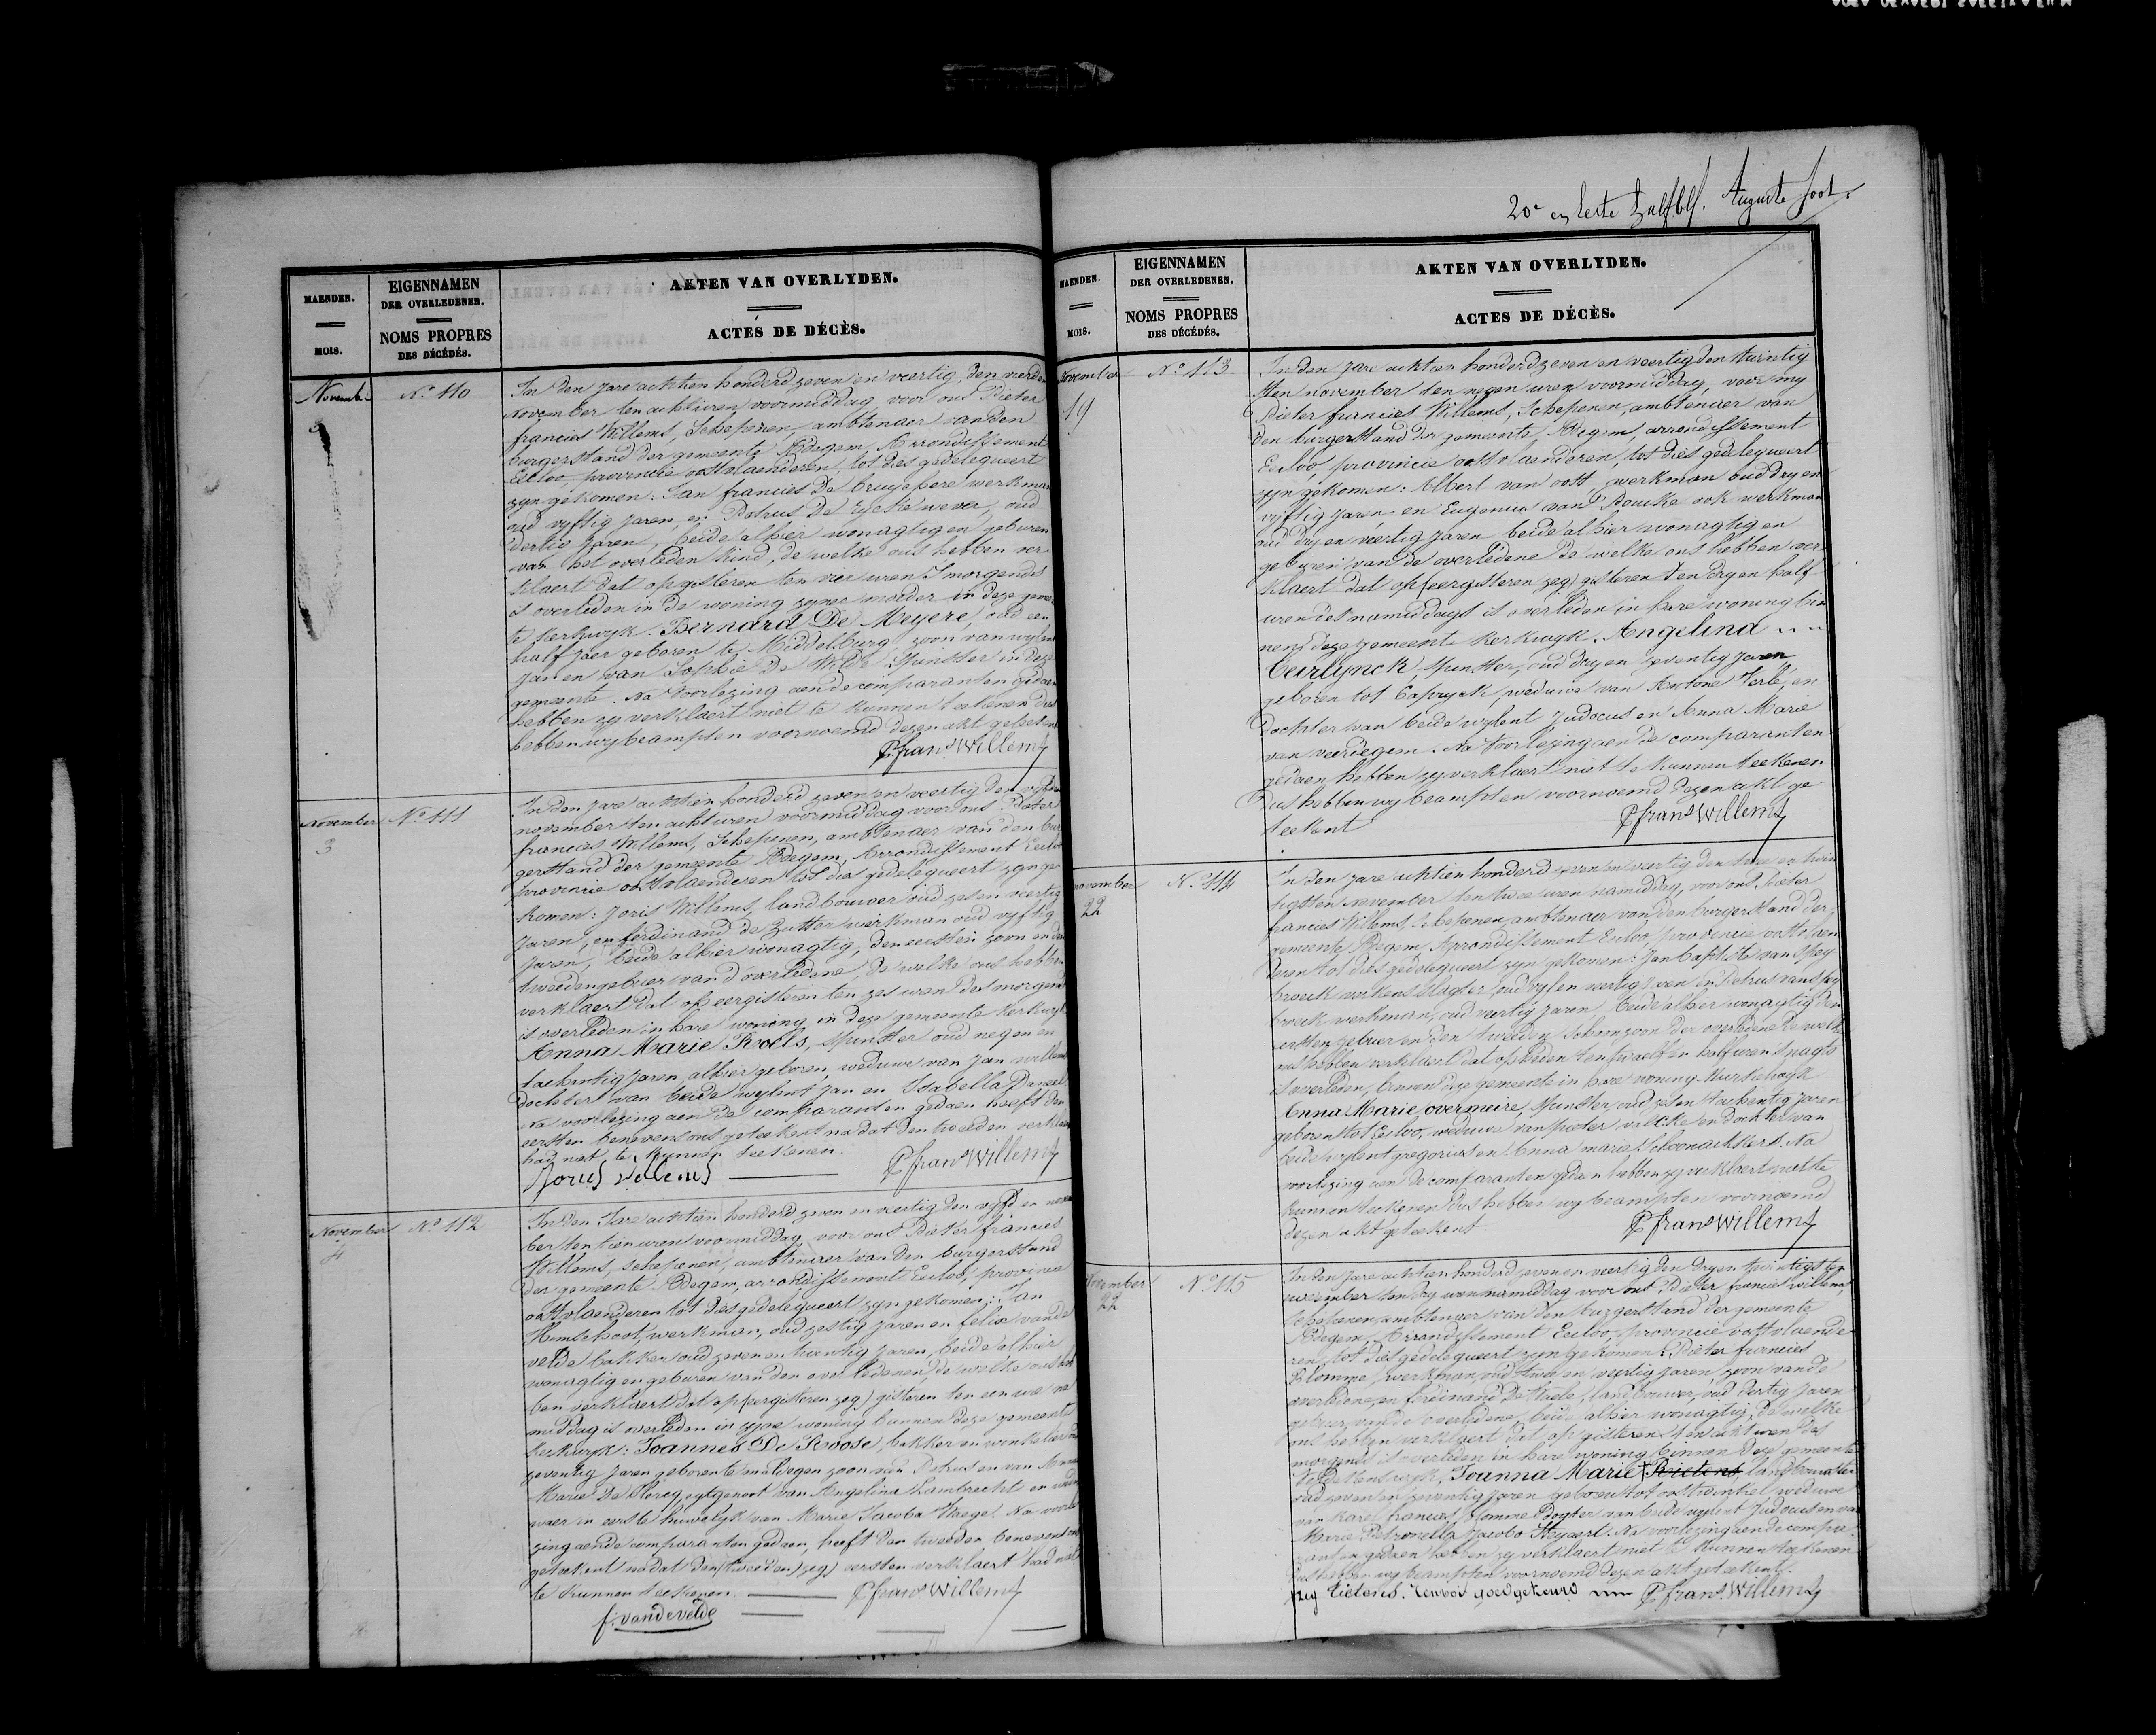 20e en leste halfbl. Auguste
MAENDEN.
MOIS.
EIGENNAMEN
DER OVERLEDENEN.
NOMS PROPRES
DES DÉCÉDÉS.
AKTEN VAN OVERLYDEN.
ACTES DE DÉCÈS.
November
3
No 110
In den jare achtien honderd zeven en veertig, den vierden
November ten acht uren voormiddag voor ons Pieter
francies Willems, Schepenen, ambtenaer van den
burgerstand der gemeente Adegem, Arrondissement
Eecloo, provincie oostvlaenderen, tot dies gedelegueert
zyn gekomen: Jan francies De Cruyepere werkman
oud vyftig jaren, en Petrus De wever, oud
dertig jaren, beide alhier wonagtig en geburen
van het overleden kind, de welke ons hebben ver-
klaert dat op gisteren ten vier uren Smorgends
is overleden in de woning zyner moeder in deze gemeen
te kerkwyk. Bernard De Meyere, oud een
half jaer geboren te Middelburg, zoon van wylent
Jan en van Sophie De Wilde Spinster in deze
gemeente. Na voorlezing aen de comparanten gedaen
hebben zy verklaert niet te kunnen teekenen dus
hebben wy beampten voornoemd dezen akt geteekend
P. frans Willems
November
3
No 111
In den jare achtien honderd zeven en veertig den vyfden
november ten acht uren voormiddag voor ons Pieter
francies Willems, Schepenen, ambtenaer van den bur
gerstand der gemeente Adegem, Arrondissement Eecloo
provincie oostvlaenderen tot dies gedelegueert zyn ge
komen: Joris Willems, landbouwer oud zes en veertig
jaren, en ferdinand de Zutter werkman oud vyftig
jaren, beide alhier wonagtig, den eersten zoon en den
tweeden gebuer van d'overledene, de welke ons hebben
verklaert dat op eergisteren ten zes uren des morgends
is overleden in hare woning in deze gemeente kerkwyk
Anna Marie Roels, Spinster oud negen en
tachentig jaren, alhier geboren, weduwe van Jan willems
dochter van beide wylent Jan en Isabella
Na voorlezing aen de comparanten gedaen heeft den
eersten benevens ons geteekent na dat den tweeden verklaert
had niet te kunnen teekenen.
Joris Willems P frans Willems
November
4
No 112
In den Jare achtien honderd zeven en veertig den vyfden novem
ber ten tien uren voormiddag voor ons Pieter francies
Willems, schepenen, ambtenaer van den burgerstand
der gemeente Adegem, arrondissement Eecloo, provincie
oostvlaenderen tot dies gedelegueert zyn gekomen: Jan
Hemschoot, werkman, oud zestig jaren en felix vande
velde bakker oud zeven en twintig jaren, beide alhier
wonagtig en geburen van den overledenen, de welke ons heb
ben verklaert dat op (eergisteren zeg) gisteren ten een ure na
middag is overleden in zyne woning binnen deze gemeente
kerkwyk: Joannes De Roose, bakker en winkelier oud
zeventig jaren geboren te maldegem zoon van Petrus en van Anna
Marie De Clercq, egtgenoot van Angelina Lambrecht en weduw
naer in eerste huwelyk van Marie Jacoba Haegel. Na voorle
zing aen de comparanten gedaen, heeft den tweeden benevens ons
geteekent nadat den (tweeden) zeg) eersten verklaert had niet
te kunnen teekenen. P frans Willems
f. vandevelde
MAENDEN.
MOIS.
EIGENNAMEN
DER OVERLEDENEN.
NOMS PROPRES
DES DÉCÉDÉS.
AKTEN VAN OVERLYDEN.
ACTES DE DÉCÈS.
November
19
No 113
In den jare achtien honderd zeven en veertig den twintig
sten november ten negen uren voormiddag, voor my
Pieter francies Willems, Schepenen, ambtenaer van
den burgerstand der gemeente Adegem, arrondissement
Eecloo, provincie oostvlaenderen, tot dies gedelegueert
zyn gekomen: Albert van oost, werkman oud dry en
vyftig jaren en Eugenius van Poucke ook werkman
oud dry en veertig jaren beide alhier wonagtig en
geburen van de overledene de welke ons hebben ver
klaert dat op (eergisteren zeg) gisteren ten dry en half
uren des namiddags is overleden in hare woning bin
nen deze gemeente kerkwyk, Angelina
Ceurlynck, spinster, oud dry en zeventig jaren
geboren tot Capryck, weduwe van Antone Verle, en
dochter van beide wylent Judocus en Anna Marie
van veerdegem. Na voorlezing aen de comparanten
gedaen hebben zy verklaert niet te kunnen teekenen
dus hebben wy beampten voornoemd dezen akt ge
teekent P frans Willems
november
22
No 114
In den jare achtien honderd zeven en veertig den twee en twin
tigsten november ten twee uren namiddag, voor ons Pieter
francies Willems, Schepenen, ambtenaer van den burgerstand der
gemeente Adegem Arrondissement Eecloo, provincie oostvlaen
deren tot dies gedelegueert zyn gekomen: Jan baptiste van Spey
broeck verkensslagter, oud vyf en veertig jaren en Petrus van Spey
broeck werkman, oud veertig jaren beide alhier wonagtig den
eersten gebuer en den tweeden Schoonzoon der overledene de welke
ons hebben verklaert dat op heden ten twaelf en half uren Snagts
is overleden, binnen deze gemeente in hare woning
Anna Marie overmeire, Spinster, oud zes en tachentig jaren
geboren tot Eecloo, weduwe van pieter vilcke en dochter van
beide wylent gregorius en Anna marie Schoonackkers. Na
voorlezing aen de comparanten gedaen hebben zy verklaert niet te
kunnen teekenen dus hebben wy beampten voornoemd
dezen akt geteekent P frans Willems
November
22
No 115
In den jare achtien honderd zeven en veertig den dry en twintigsten
november ten dry uren namiddag voor ons Pieter francies willems,
schepenen ambtenaer van den burgerstand der gemeente
Adegem, Arrondissement Eecloo, provincie oostvlaende
ren, tot dies gedelegueert zyn gekomen: Pieter francies
Plomme, werkman, oud twee en veertig jaren, zoon van de
overledene, en ferdinand De Waele, landbouwer, oud dertig jaren
gebuer van de overledene, beide alhier wonagtig, de welke
ons hebben verklaert dat op gisteren ten acht uren des
morgends is overleden in hare woning binnen deze gemeente
Joanna Marie + Rietens landbouwster
oud zeven en zeventig jaren geboren tot oostwinkel weduwe
van Karel francies Plomme dogter van beide wylent Judocus en van
Marie Petronella Jacoba Steyaert. Na voorlezing aen de compa-
ranten gedaen hebben zy verklaert niet te kunnen teekenen
dus hebben wy beampten voornoemd dezen akt geteekent
zeg Lietens. renvoi goedgekeurd P frans Willems